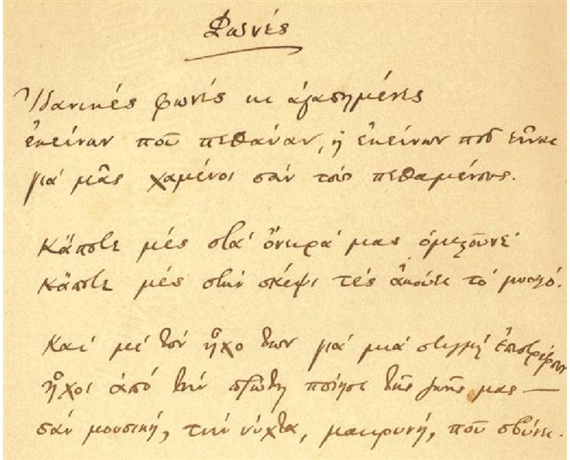 Φωνές
Ἰδανικές φωνές κι ἀγαπημένες
ἐκείνων ποῦ πεθάναν, ἤ ἐκείνων ποῦ εἶναι
γιά μᾶς χαμένοι σάν τούς πεθαμένους.
Κάποτε μές στά ὄνειρά μας ὁμιλοῦνε·
Κάποτε μές στήν σκέψι τές ἀκούει τό μυαλό.
Καί μέ τόν ἦχο των γιά μιά στιγμή ἐπιστρέφουν
ἦχοι ἀπό τήν πρώτη ποίησι τῆς ζωῆς μας —
σάν μουσική, τήν νύχτα, μακρυνή, ποῦ σβύνει.